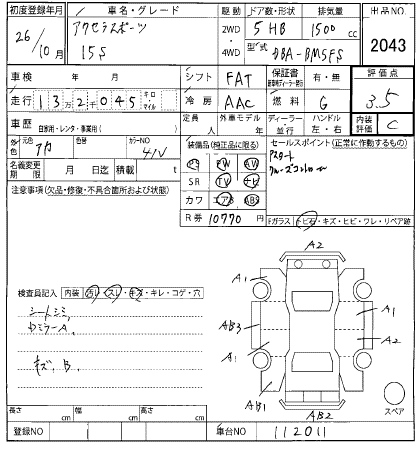 初度登録年月 車名・グレード 駆動 ドア数・形状 排気量 出品NO
26/10月 アクセラスポーツ 15S 2WD・4WD 5HB 1500cc 2043
型式 DBA-BM5FS
車検 年 月 シフト FAT 保証書 有・無 評価点
走行 13万2千045 キロ マイル 冷房 AAC 燃料 G 3.5
車歴 自家用・レンタ・事業用( ) 定員 人 外車モデル 年 ディーラー 並行 ハンドル 左・右 内装評価 C
外色 元色 色番 カラーNO 41V
装備品(純正品に限る) セールスポイント(正常に作動するもの)
名義変更期限 月 日迄 積載 t
PS PW AW
SR TV ナビ
カワ エアB ABS
R券 10770円
注意事項(欠品・修復・不具合箇所および状態)
Fガラス トビ石・キズ・ヒビ・ワレ・リペア跡
検査員記入 内装 汚レ・スレ・キズ・キレ・コゲ・穴
シートシミ
キズ、B
A2
A1
A1
AB3
A1
A2
A1
AB1
AB2
スペア
長さ cm 幅 cm 高さ cm
登録NO 車台NO 112011